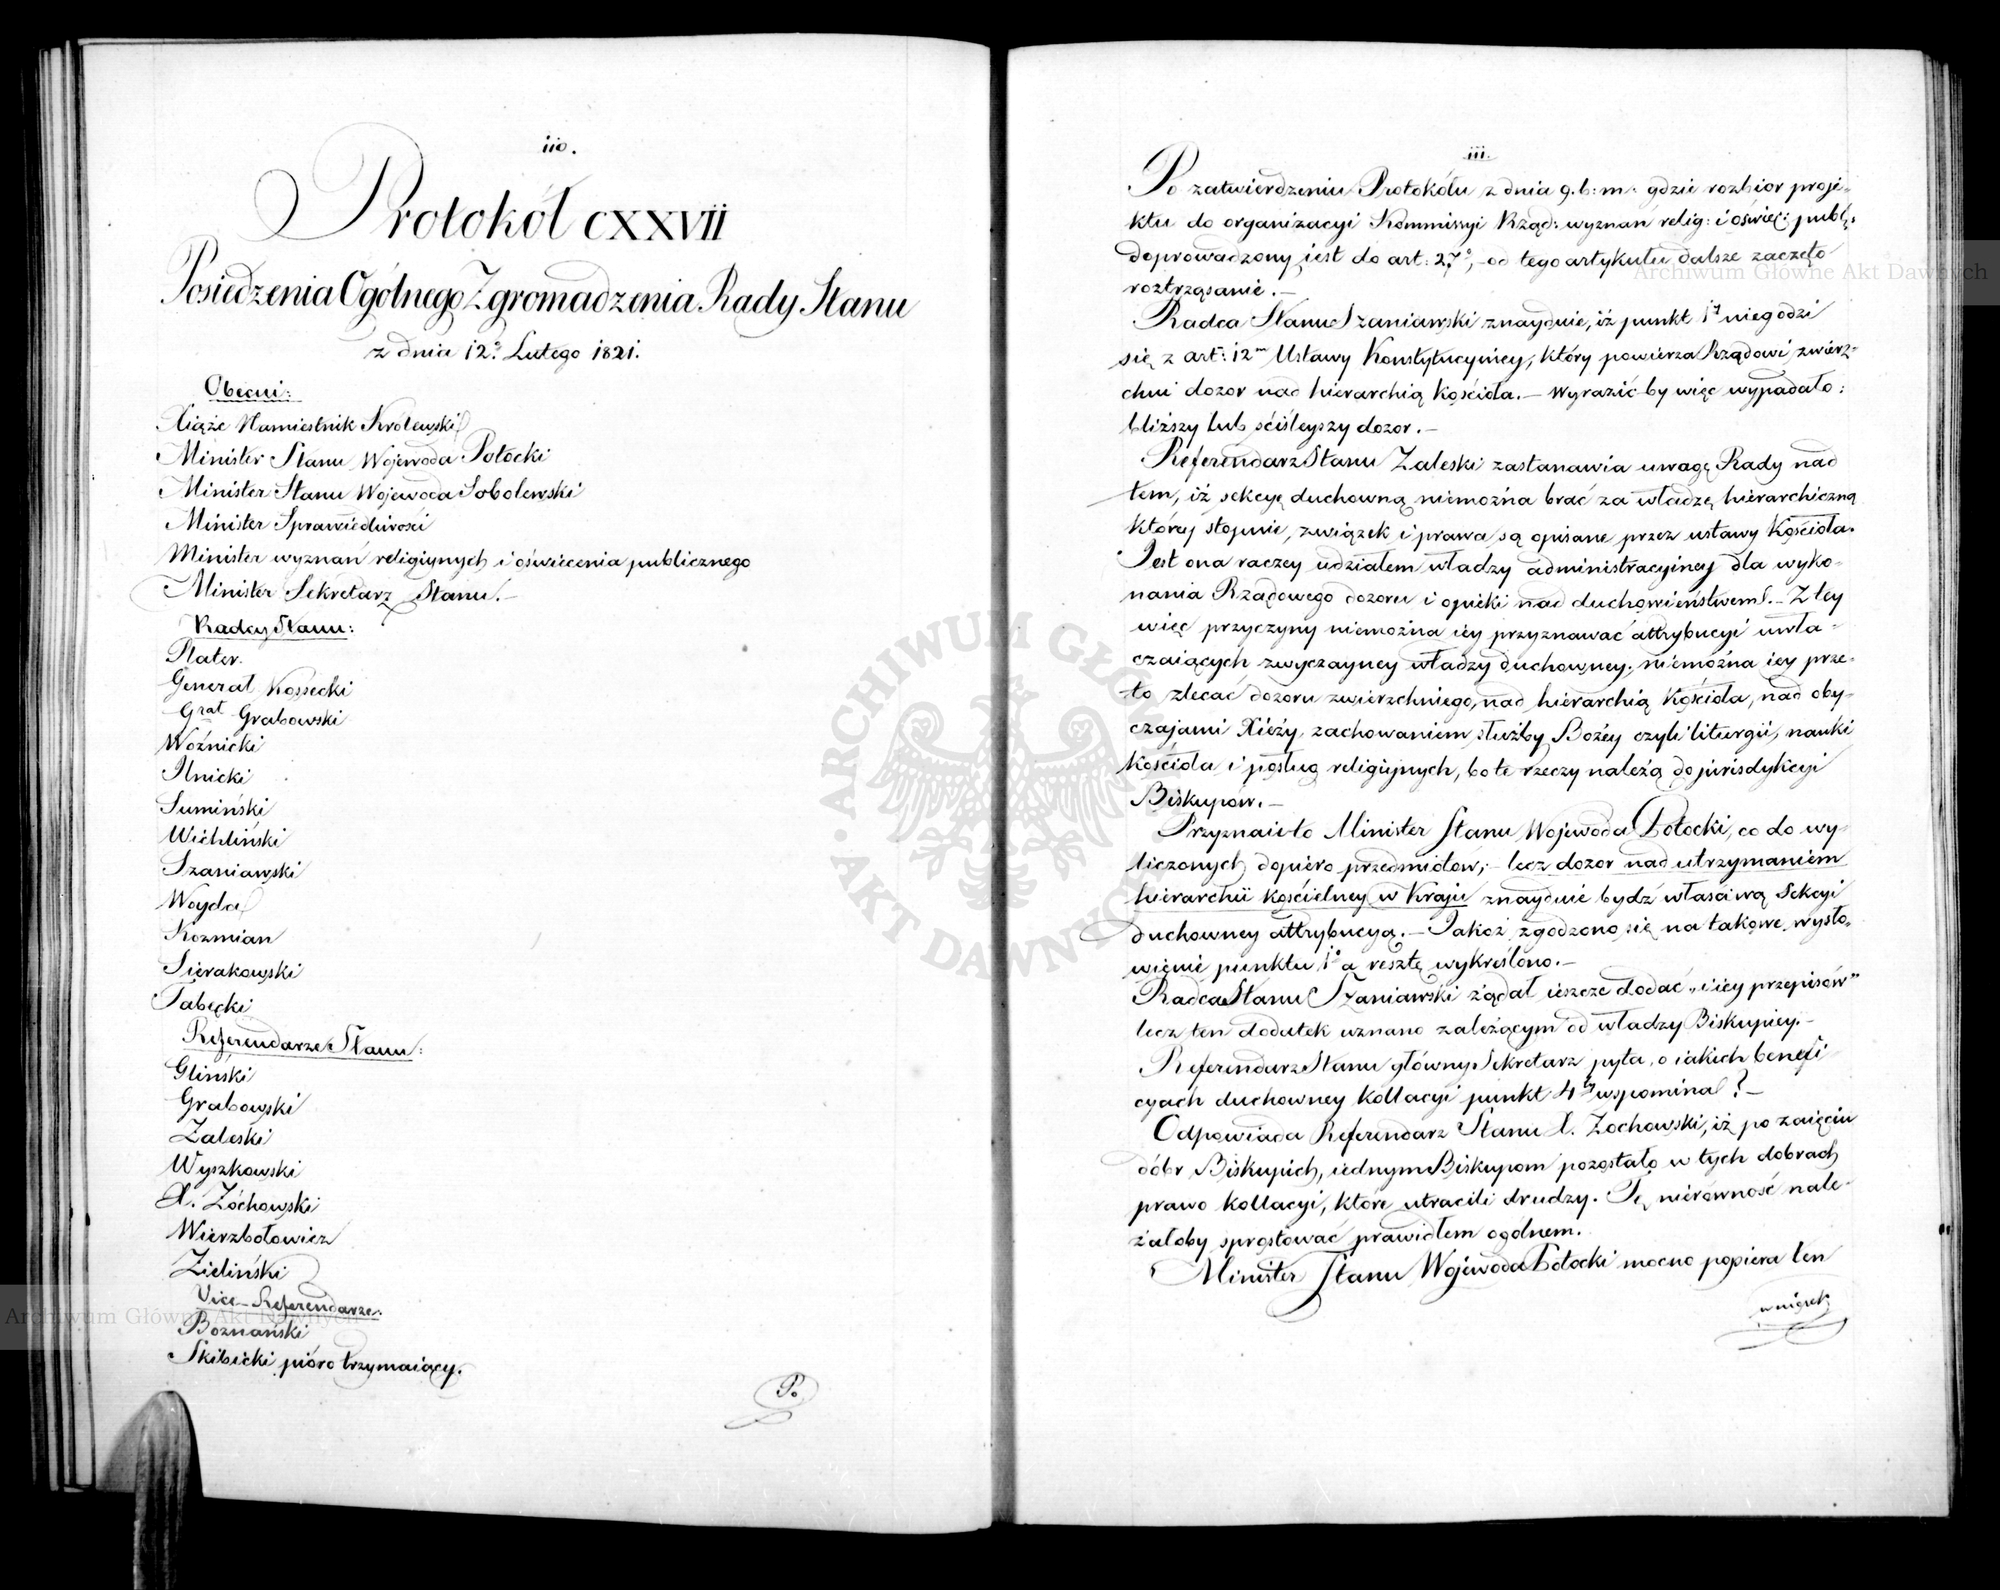 110.
Protokół CXXVII
Posiedzenia Ogólnego Zgromadzenia Rady Stanu
z dnia 12º Lutego 1821.
Obecni:
Xiąże Namiestnik Królewski
Minister Stanu Wojewoda Potocki
Minister Stanu Wojewoda Sobolewski
Minister Sprawiedliwości
Minister wyznań religiynych i oświecenia publicznego
Minister Sekretarz Stanu.—
Radcy Stanu:
Plater.
Generał Kossecki
Grał Grabowski
Woźnicki
Ilnicki
Sumiński
Wichliński
Szaniawski
Woyda
Kozmian
Sierakowski
Tabęcki
Referendarze Stanu:
Gliński
Grabowski
Zaleski
Wyszkowski
X. Żóchowski
Wierzbołowicz
Zieliński
Vice-Referendarze:
Boznański
Skibicki pióro trzymaiący.
Po
111.
Po zatwierdzeniu Protokółu z dnia 9. b: m: gdzie rozbior proje-
ktu do organizacyi Kommissyi Rząd: wyznań relig: i oświec: publ:
doprowadzony iest do art: 27º, od tego artykułu dalsze zaczęto
roztrząsanie.—
Radca Stanu Szaniawski znayduie, iż punkt 1y niegodzi
się z art: 12m Ustawy Konstytucyiney, który powierza Rządowi zwierz-
chni dozor nad hierarchią Kościoła.— Wyrazić by więc wypadało:
bliższy lub ściśleyszy dozor.—
Referendarz Stanu Zaleski zastanawia uwagę Rady nad
tem, iż sekcyę duchowną niemożna brać za władzę hierarchiczną
którey stopnie, związek i prawa są opisane przez ustawy Kościoła.
Jest ona raczey udziałem władzy administracyiney dla wyko-
nania Rządowego dozoru i opieki nad duchowieństwem.— Z tey
więc przyczyny niemożna iey przyznawać attrybucyi uwła-
czaiących zwyczayney władzy duchowney; niemożna iey prze-
to zlecać dozoru zwierzchniego, nad hierarchią Kościoła, nad oby-
czajami Xięży, zachowaniem służby Bożey czyli liturgii, nauki
Kościoła i posług religiynych, bo te rzeczy należą do jurisdykcyi
Biskupów.—
Przyznaie to Minister Stanu Wojewoda Potocki, co do wy-
liczonych dopiero przedmiotów;— lecz dozor nad utrzymaniem
hierarchii kościelney w Kraju znayduie bydź własciwą Sekcyi
duchowney attrybucyą.— Jakoż zgodzono się na takowe wysło-
wienie punktu 1º a resztę wykreślono.—
Radca Stanu Szaniawski żądał ieszcze dodać „i iey przepisów”
lecz ten dodatek uznano zależącym od władzy Biskupiey.—
Referendarz Stanu główny Sekretarz pyta, o iakich benefi-
cyach duchowney kollacyi punkt 4ty wspomina?—
Odpowiada Referendarz Stanu X. Żochowski, iż po zaięciu
dóbr Biskupich, iednym Biskupom pozostało w tych dobrach
prawo kollacyi, które utracili drudzy. Tę nierówność nale-
żałoby sprostować prawidłem ogólnem.
Minister Stanu Wojewoda Potocki mocno popiera ten
wniosek
Archiwum Główne Akt Dawnych
Archiwum Główne Akt Dawnych
ARCHIWUM GŁÓWNE AKT DAWNYCH